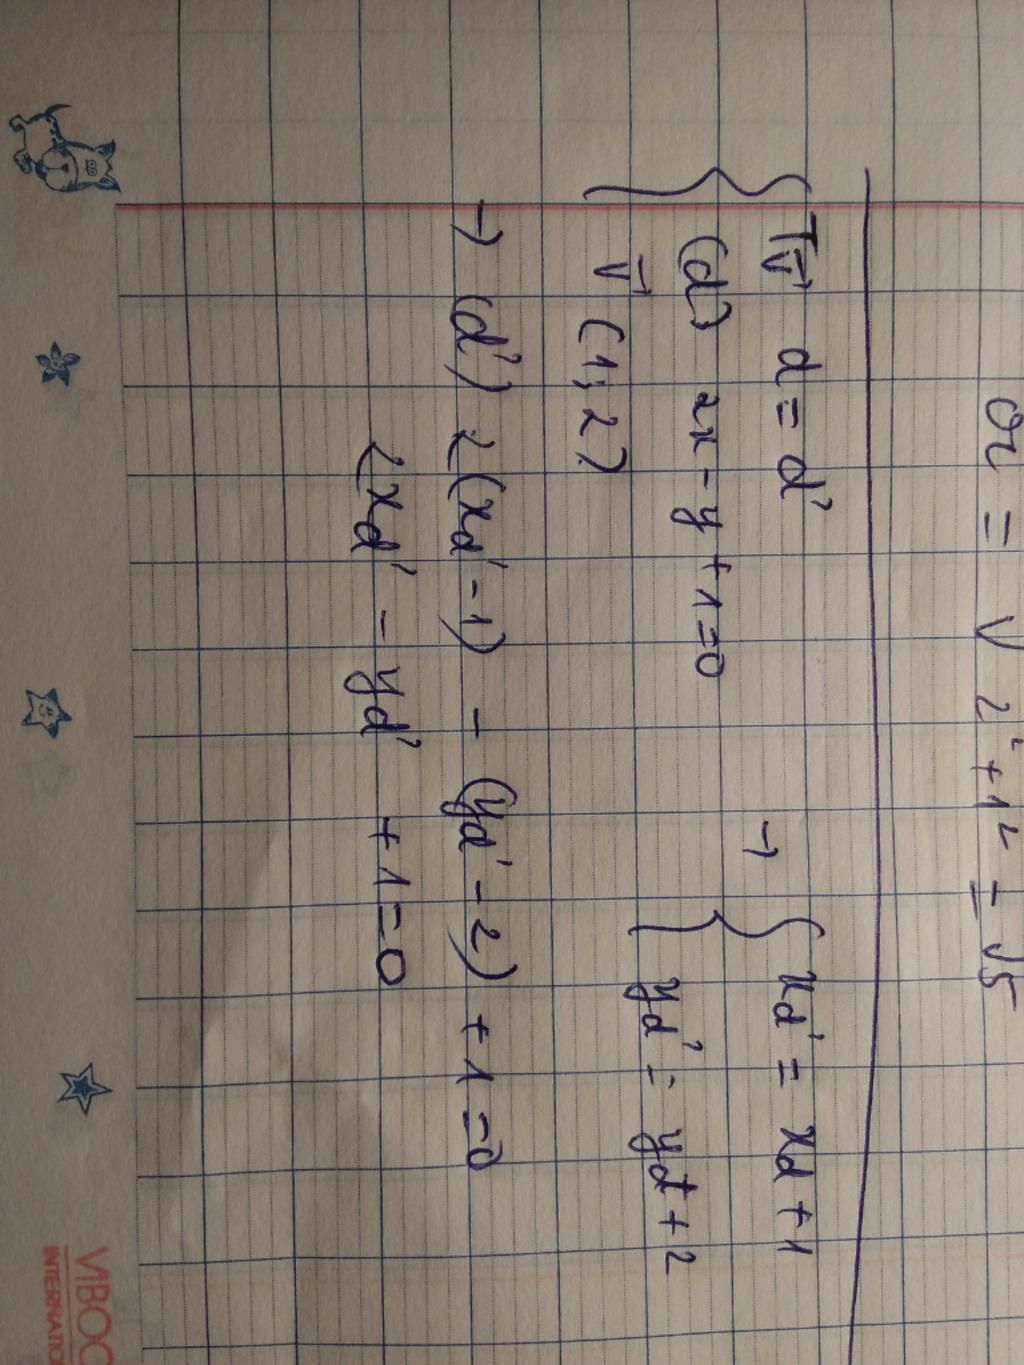 or = √ 2² + 1² = √5
T v⃗ d = d'
(d) 2x - y + 1 = 0
v⃗ (1; 2)
→ { xd' = xd + 1
yd' = yd + 2
→ (d') 2(xd' - 1) - (yd' - 2) + 1 = 0
2xd' - yd' + 1 = 0
VIBOO
INTERNATIO